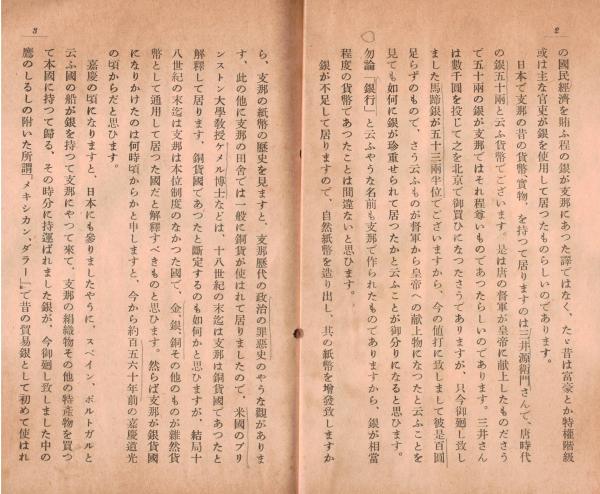 2
の國民經濟を賄ふ程の銀が支那にあつた譯ではなく、たゞ昔は富豪とか特權階級
或は主な官吏が銀を使用して居つたものらしいのであります。
日本で支那の昔の貨幣實物、を持つて居りますのは三井源衞門さんで、唐時代
の銀五十兩と云ふ貨幣でございます。是は唐の督軍が皇帝に献上したものださう
で五十兩の銀が支那ではそれ程尊いものであつたらしいのであります。三井さん
は數千圓を投じて之を北京で御買ひになつたさうでありますが、只今御廻し致し
ました馬蹄銀が五十三兩半位でございますから、今の値打に致しまして彼是百圓
足らずのもので、さう云ふものが督軍から皇帝への献上物になつたと云ふことを
見ても如何に銀が珍重せられて居つたかと云ふことが御分りになると思ひます。
勿論「銀行」と云ふやうな名前も支那で作られたものでありますから、銀が相當
程度の貨幣であつたことは間違ないと思ひます。
銀が不足して居りますので、自然紙幣を造り出し、其の紙幣を増發致しますか
3
ら、支那の紙幣の歴史を見ますと、支那歴代の政治の罪惡史のやうな觀がありま
す、此の他に支那の田舍では一般に銅貨が使はれて居りましたので、米國のプリ
ンストン大學教授ケメル博士などは、十八世紀の末迄は支那は銅貨國であつたと
解釋して居ります、銅貨國であつたと斷定するのも如何かと思ひますが、結局十
八世紀の末迄は支那は本位制度のなかつた國で、金、銀、銅その他のものが雜然貨
幣として通用して居つた國だと解釋すべきものと思ひます。然らば支那が銀貨國
になりかけたのは何時頃からかと申しますと、今から約百五六十年前の嘉慶道光
の頃からだと思ひます。
嘉慶の頃になりますと、日本にも參りましたやうに、スペイン、ポルトガルと
云ふ國の船が銀を持つて支那にやつて來て、支那の絹織物その他の特產物を買つ
て本國に持つて歸る、その時分に持運ばれました銀が、今御廻し致しました中の
鷹のしるしの附いた所謂『メキシカン、ダラー』で昔の貿易銀として初めて使はれ